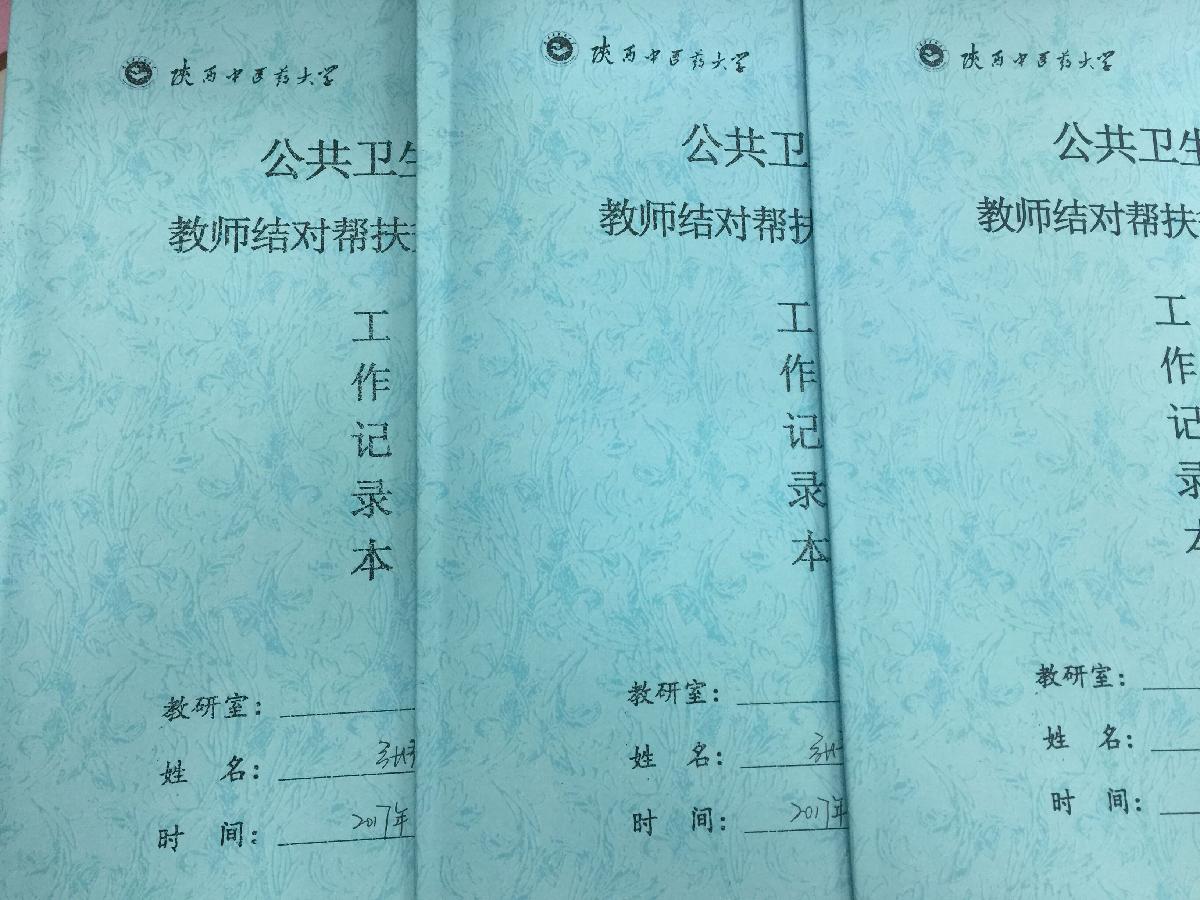 陕西中医药大学
公共卫生
教师结对帮扶
工
作
记
录
本
教研室：
姓 名：
时 间：2017年
陕西中医药大学
公共卫
教师结对帮扶
工
作
记
录
本
教研室：
姓 名：
时 间：2017年
陕西中医药大学
公共卫生
教师结对帮扶
工
作
记
录
本
教研室：
姓 名：
时 间：